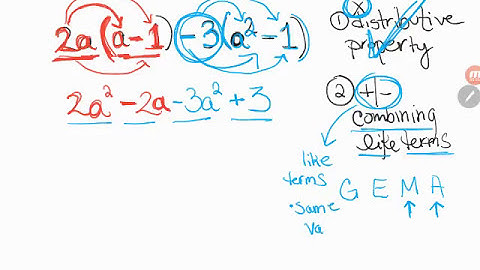 2a(a-1) -3(a²-1)
2a² -2a -3a² +3
① distributive
property
② +|-
combining
like terms
like
terms
• same
va
G E M A